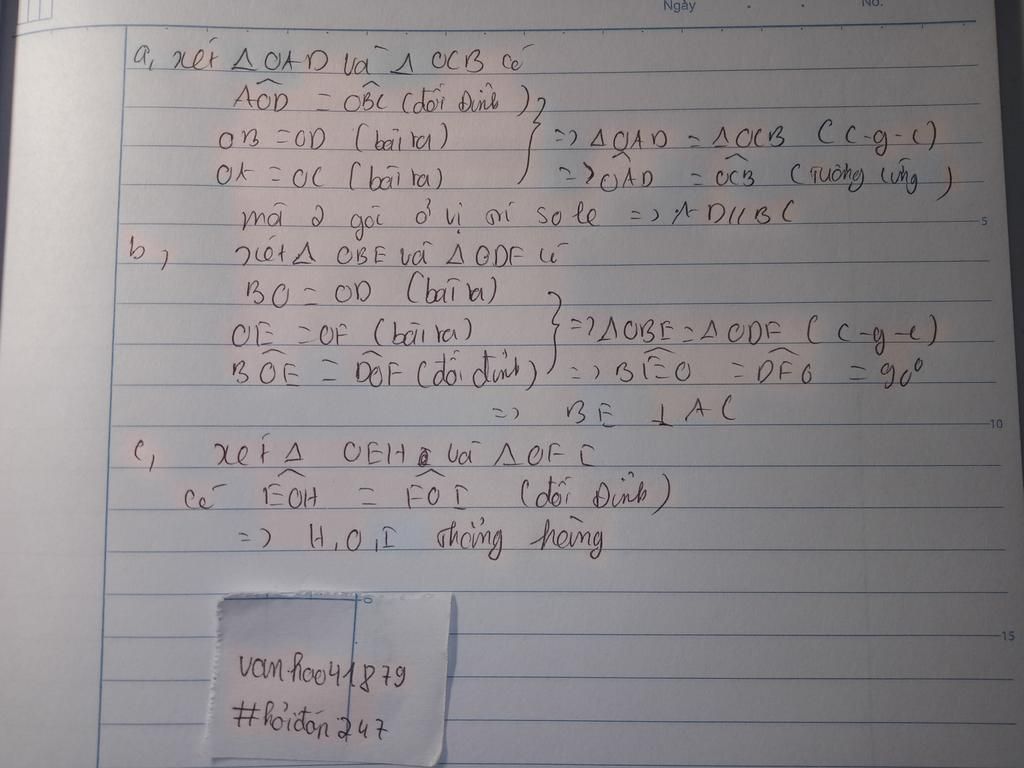 Ngày No.
a, xét Δ OAD và Δ OCB có
AOD = OBC (đối đỉnh)
OB = OD (bài ra) => ΔOAD = ΔOCB (c-g-c)
OA = OC (bài ra) => OAD = OCB (tương ứng)
mà 2 góc ở vị trí so le => AD//BC
5
b, xét Δ OBE và Δ ODF có
BO = OD (bài ra)
OE = OF (bài ra) => ΔOBE = ΔODF (c-g-c)
BOE = DOF (đối đỉnh) => BEO = DFO = 90°
=> BE ⊥ AC
10
c, xét Δ OEH và Δ OFI
Có EOH = FOI (đối đỉnh)
=> H,O,I thẳng hàng
15
vanhao41879
#hỏiđáp247